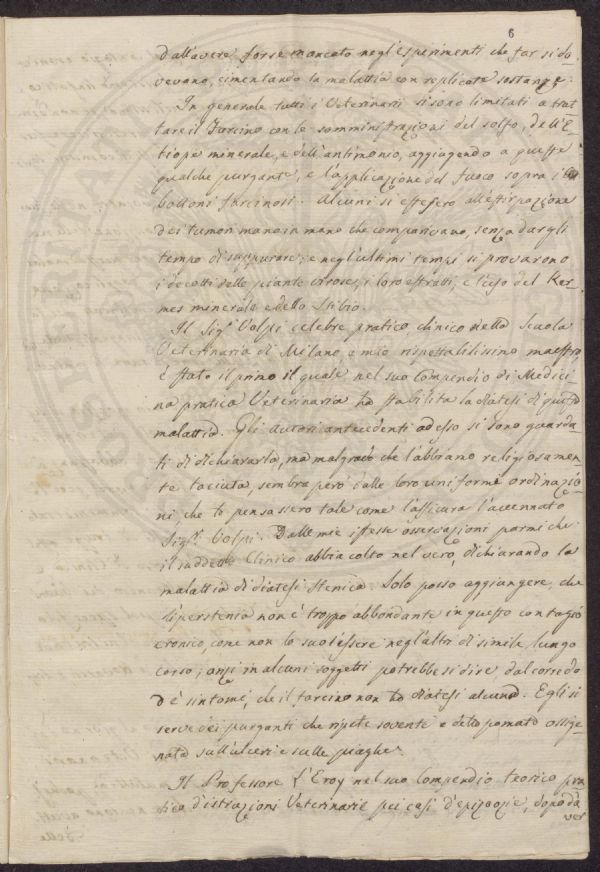 6
dall'avere forse mancato negl'esperimenti che far si do-
vevano, cimentando la malattia con replicate sostanze.
In generale tutti i Veterinarii si sono limitati a trat-
tare il Farcino con le somministrazioni del solfo, dell'E-
tiope minerale, e dell'antimonio, aggiugendo a queste
qualche purgante, e l'applicazione del fuoco sopra i
bottoni farcinosi. Alcuni si estesero all'estirpazione
dei tumori mano in mano che comparivano, senza dargli
tempo di suppurare; e negl'ultimi tempi si provarono
i decotti delle piante virose, i loro estratti, e l'uso del Ker-
mes minerale e dello Stibio.
Il Sig.r Volpi celebre pratico clinico nella Scuola
Veterinaria di Milano e mio rispettabilissimo maestro
è stato il primo il quale nel suo Compendio di Medici-
na pratica Veterinaria ha stabilita la diatesi di questa
malattia. Gli autori antecedenti ad esso si sono guarda-
ti di dichiararla, ma malgrado che l'abbiano religiosamen-
te taciuta, sembra però dalle loro uniformi ordinazio-
ni, che la pensassero tale come l'assicura l'accennato
Sig.r Volpi. Dalle mie istesse osservazioni parmi che
il suddetto Clinico abbia colto nel vero, dichiarando la
malattia di diatesi Stenica. Solo posso aggiungere, che
l'iperstenia non è troppo abbondante in questo contagio
cronico, come non lo suol essere negl'altri di simile lungo
corso; anzi in alcuni soggetti potrebbe si dire, dal corredo
d'è sintomi, che il farcino non ha diatesi alcuna. Egli si
serve dei purganti che ripete sovente e della pomata ossige-
nata sull'ulceri e sulle piaghe.
Il Professore L'Eroy nel suo Compendio teorico pra-
tico d'istruzioni Veterinarie pei casi d'epizoozie, dopo d'a-
ver